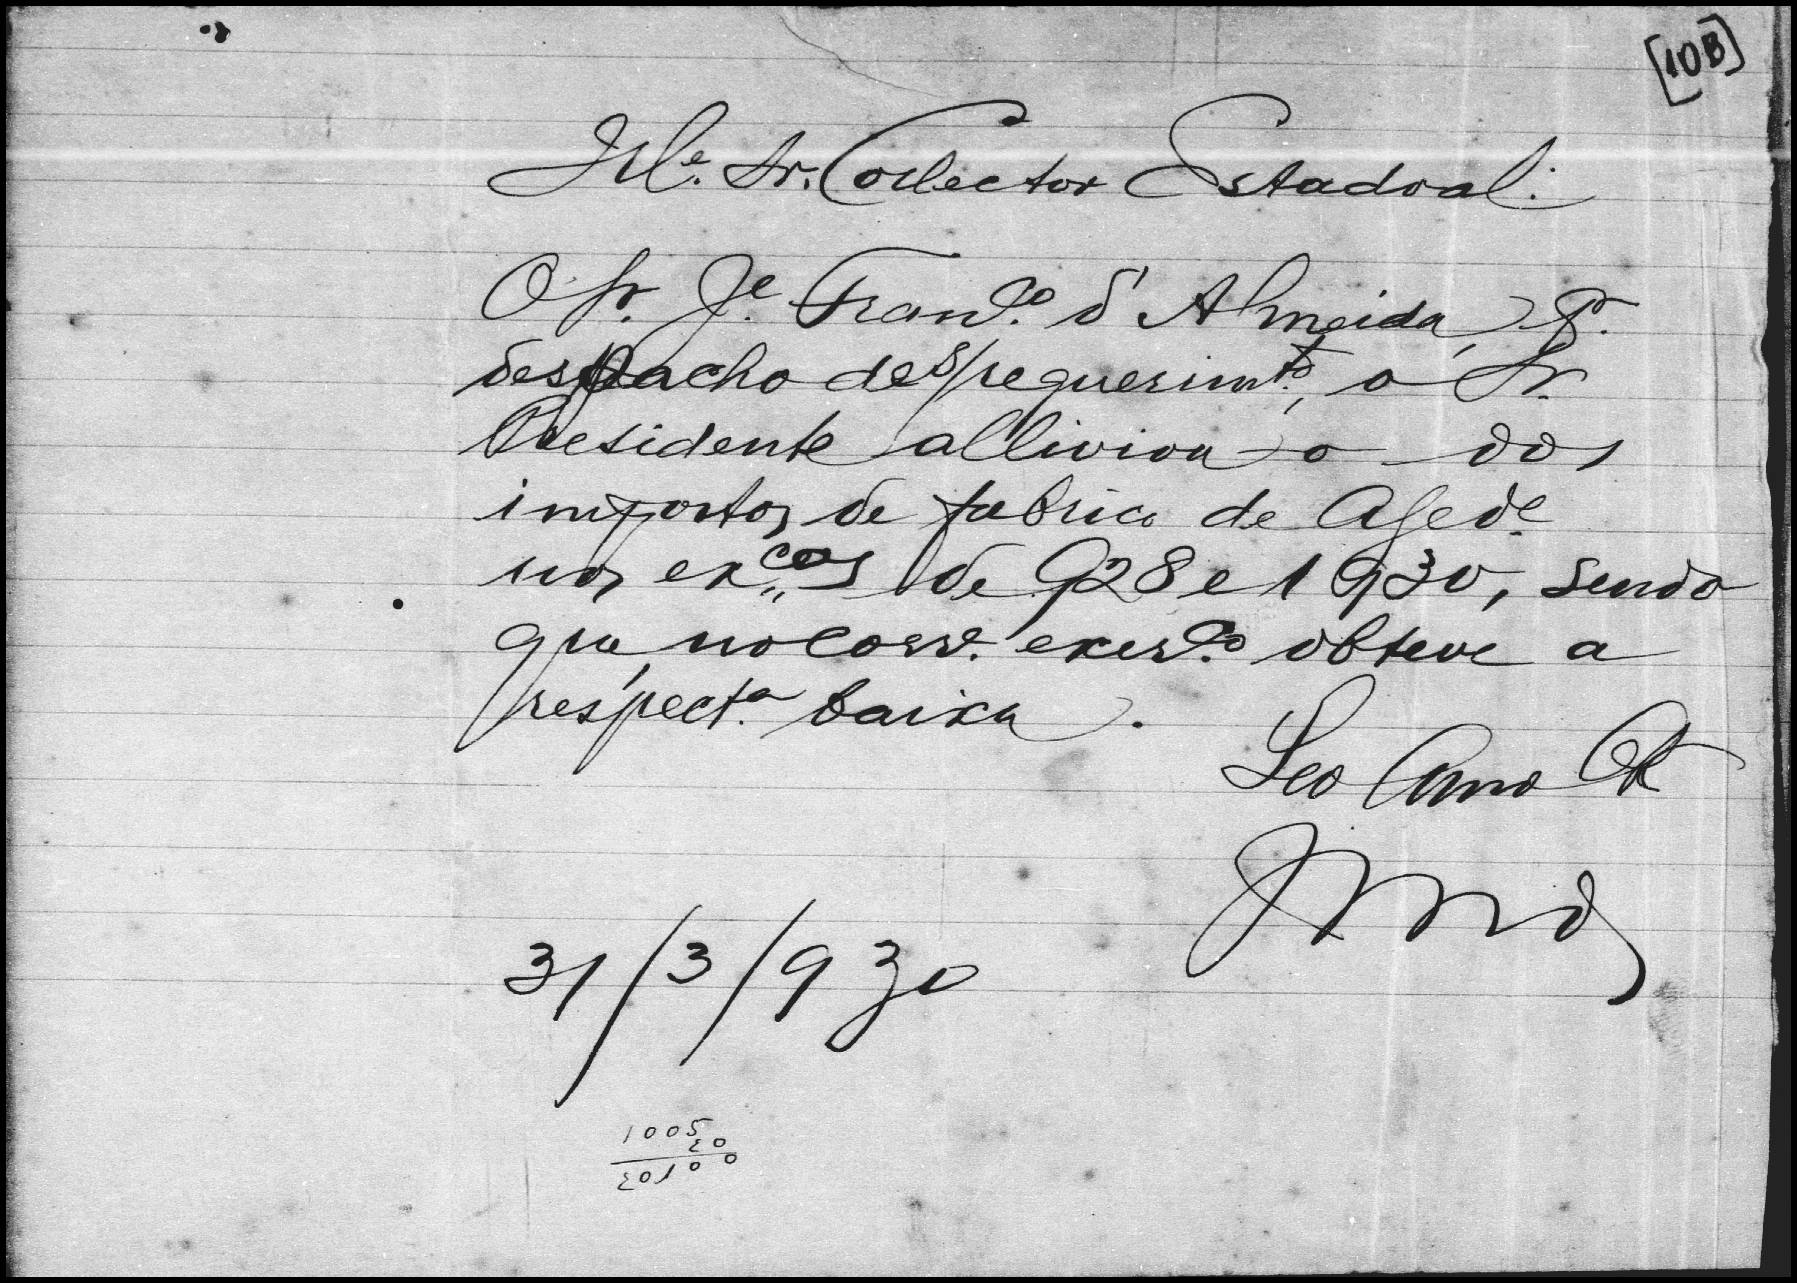 [10B]
Ille. Sr. Collector Estadoal:
O Sr. Je. Franco. d'Almeida, pr.
despacho de requerimto., o Sr.
Presidente alliviou-o dos
impostos de fabrica de Agde.
nos excos de 928 e 1930, sendo
que, no corre. exerco. obteve a
respecta. baixa.
Seo Amo
31/3/930